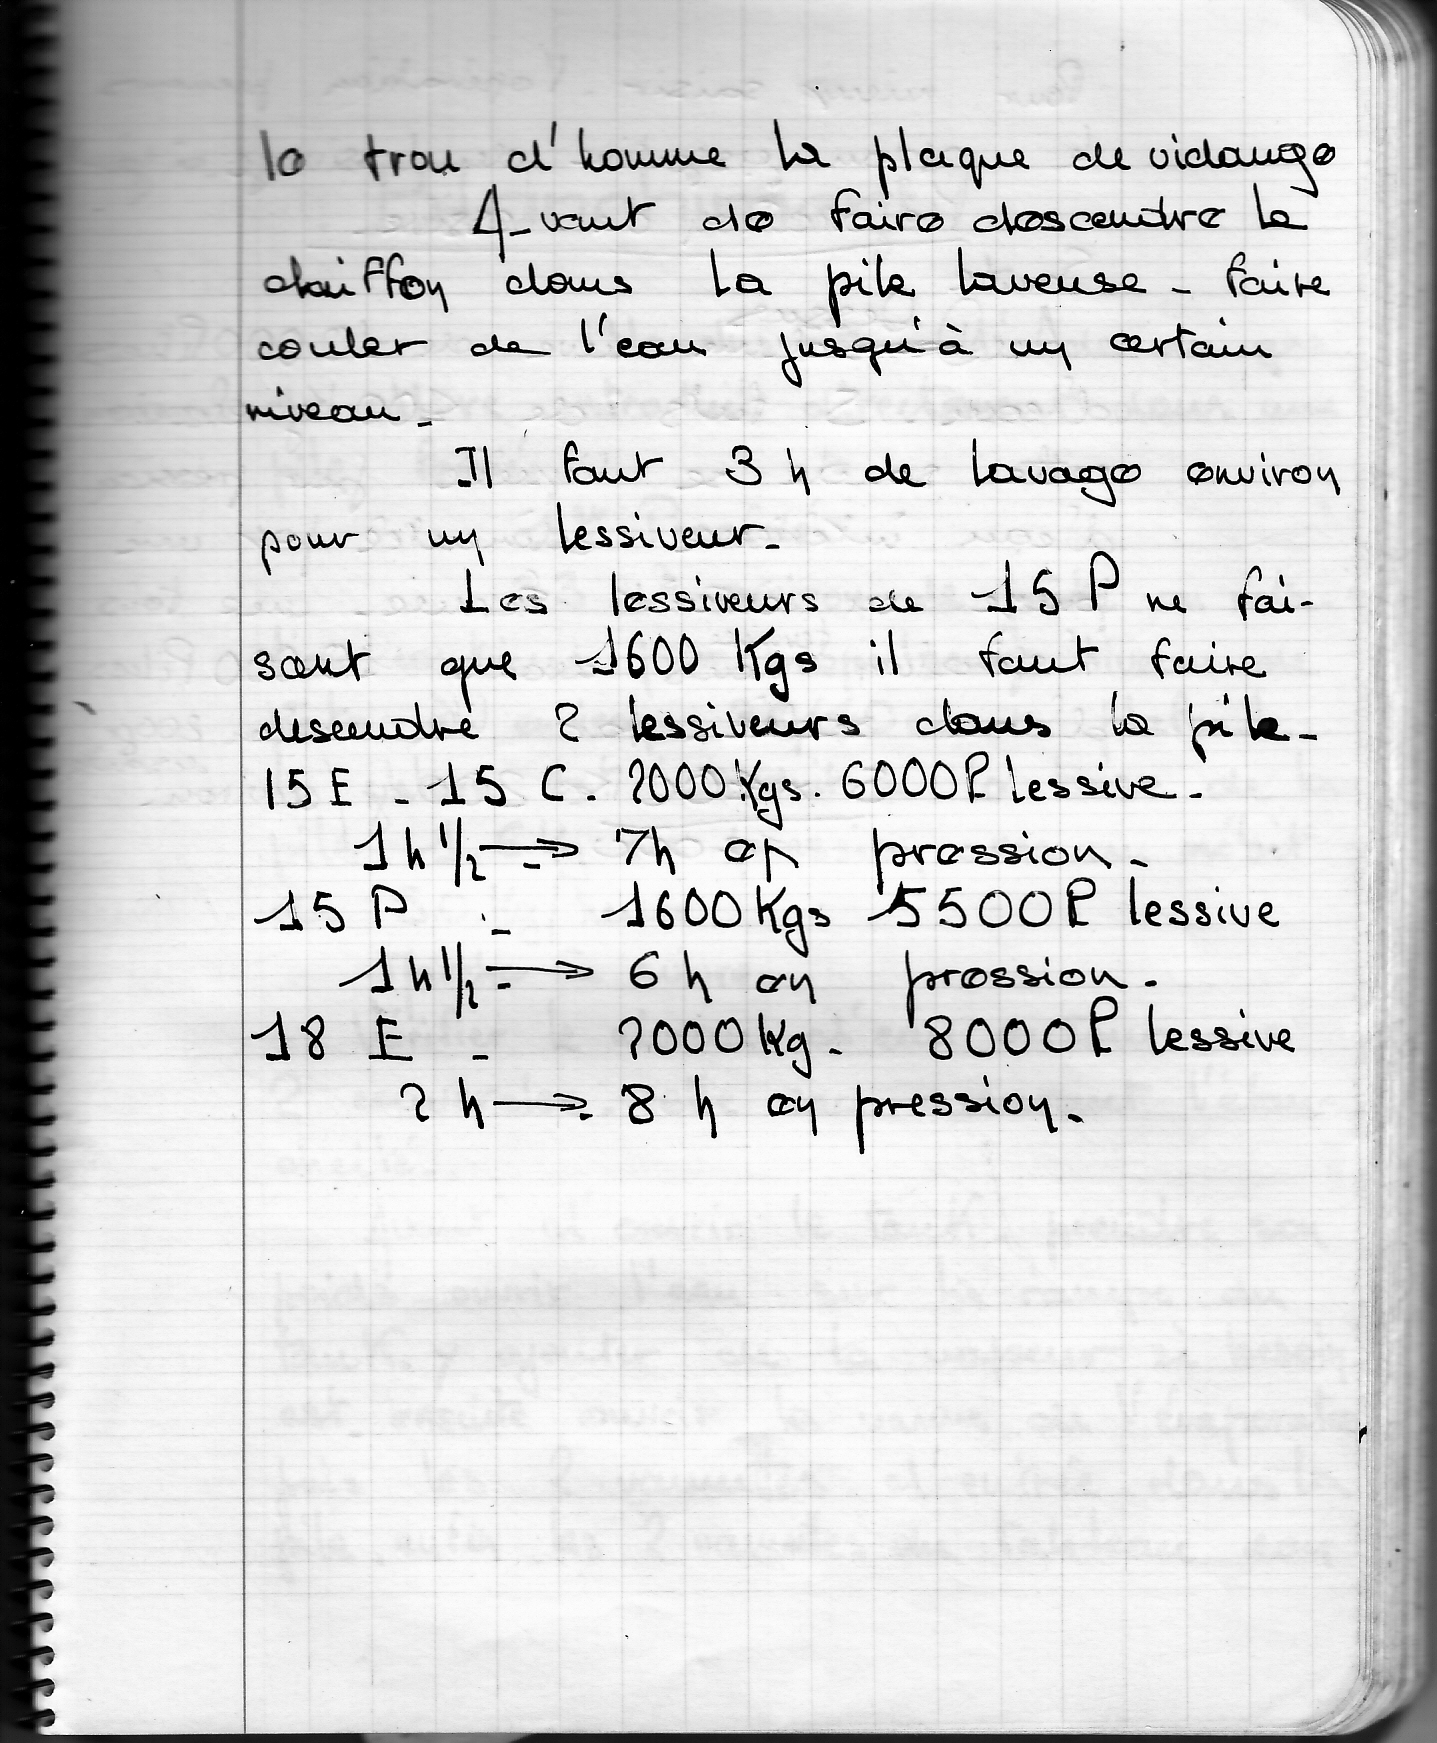 le trou d'homme la plaque de vidange
Avant de faire descendre le
chiffon dans la pile laveuse - faire
couler de l'eau jusqu'à un certain
niveau -
Il faut 3 h de lavage environ
pour un lessiveur -
Les lessiveurs de 15 P ne fai-
sant que 1600 Kgs il faut faire
descendre 2 lessiveurs dans la pile -
15 E - 15 C - 2000 Kgs. 6000 l lessive -
1h 1/2 → 7h en pression -
15 P - 1600 Kgs 5500 l lessive
1h 1/2 → 6 h en pression -
18 E - 2000 kg - 8000 l lessive
2 h → 8 h en pression -